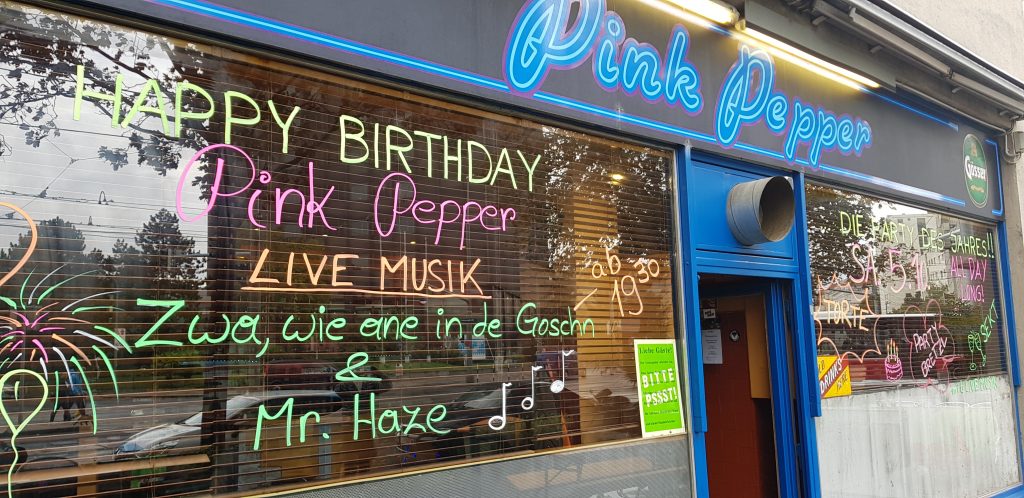 Pink Pepper
Gösser
HAPPY BIRTHDAY
Pink Pepper
LIVE MUSIK
ab
19³⁰
Zwa, wie ane in de Goschn
&
Mr. Haze
Liebe Gäste!
BITTE
PSSST!
DIE PARTY DES JAHRES!!
SA 5.10
ALL DAY
LONG!
TORTE
PARTY
SEKT
DRINKS